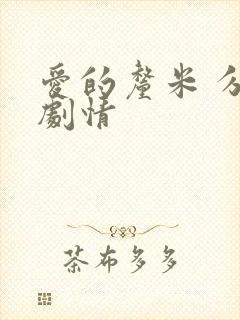 愛的釐米 分
劇情
茶布多多